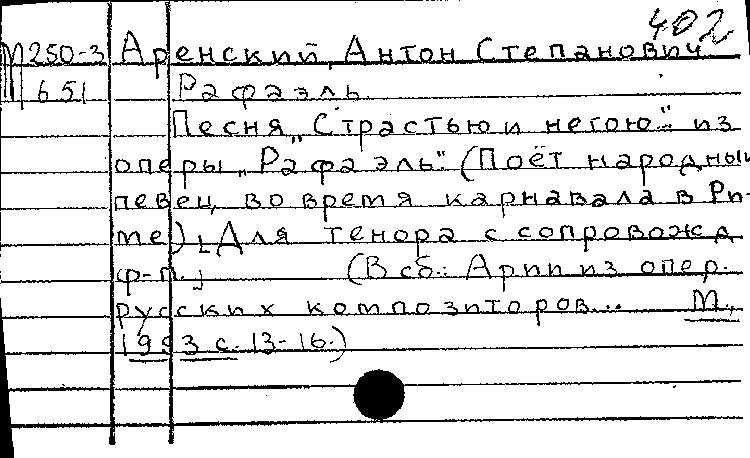 402
М250-3 Аренский, Антон Степанович
651 Рафаэль.
Песня „Страстью и негою..." из
оперы „Рафаэль". (Поёт народный
певец во время карнавала в Ри-
ме) [Для тенора с сопровожд
ф-п.] (В сб.: Арии из опер.
русских композиторов... М.,
1993 с. 13-16.)